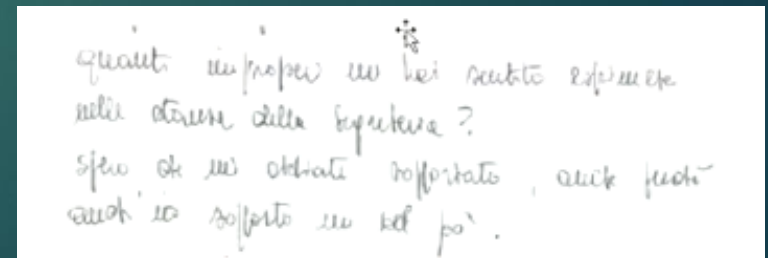 quanti improperi mi hai sentito esprimere
nelle stanze della segreteria?
spero che mi abbiate sopportato, anche perché
anch'io sopporto un bel po'.